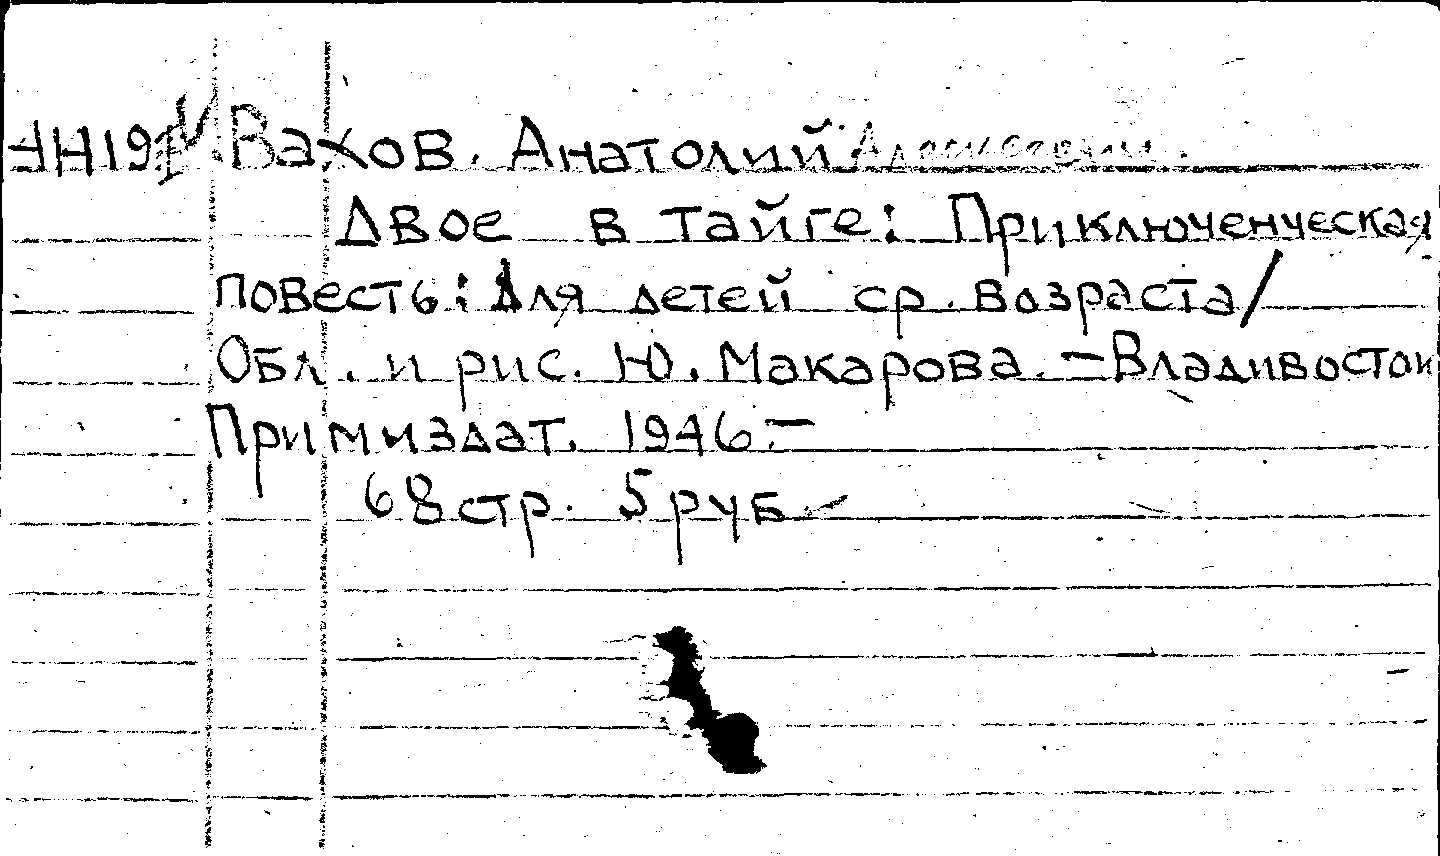 Вахов. Анатолий Алексеевич.
Двое в тайге: Приключенческая
повесть: Для детей ср. возраста/
Обл. и рис. Ю. Макарова. – Владивосток
Примиздат. 1946. –
68 стр. 5 руб